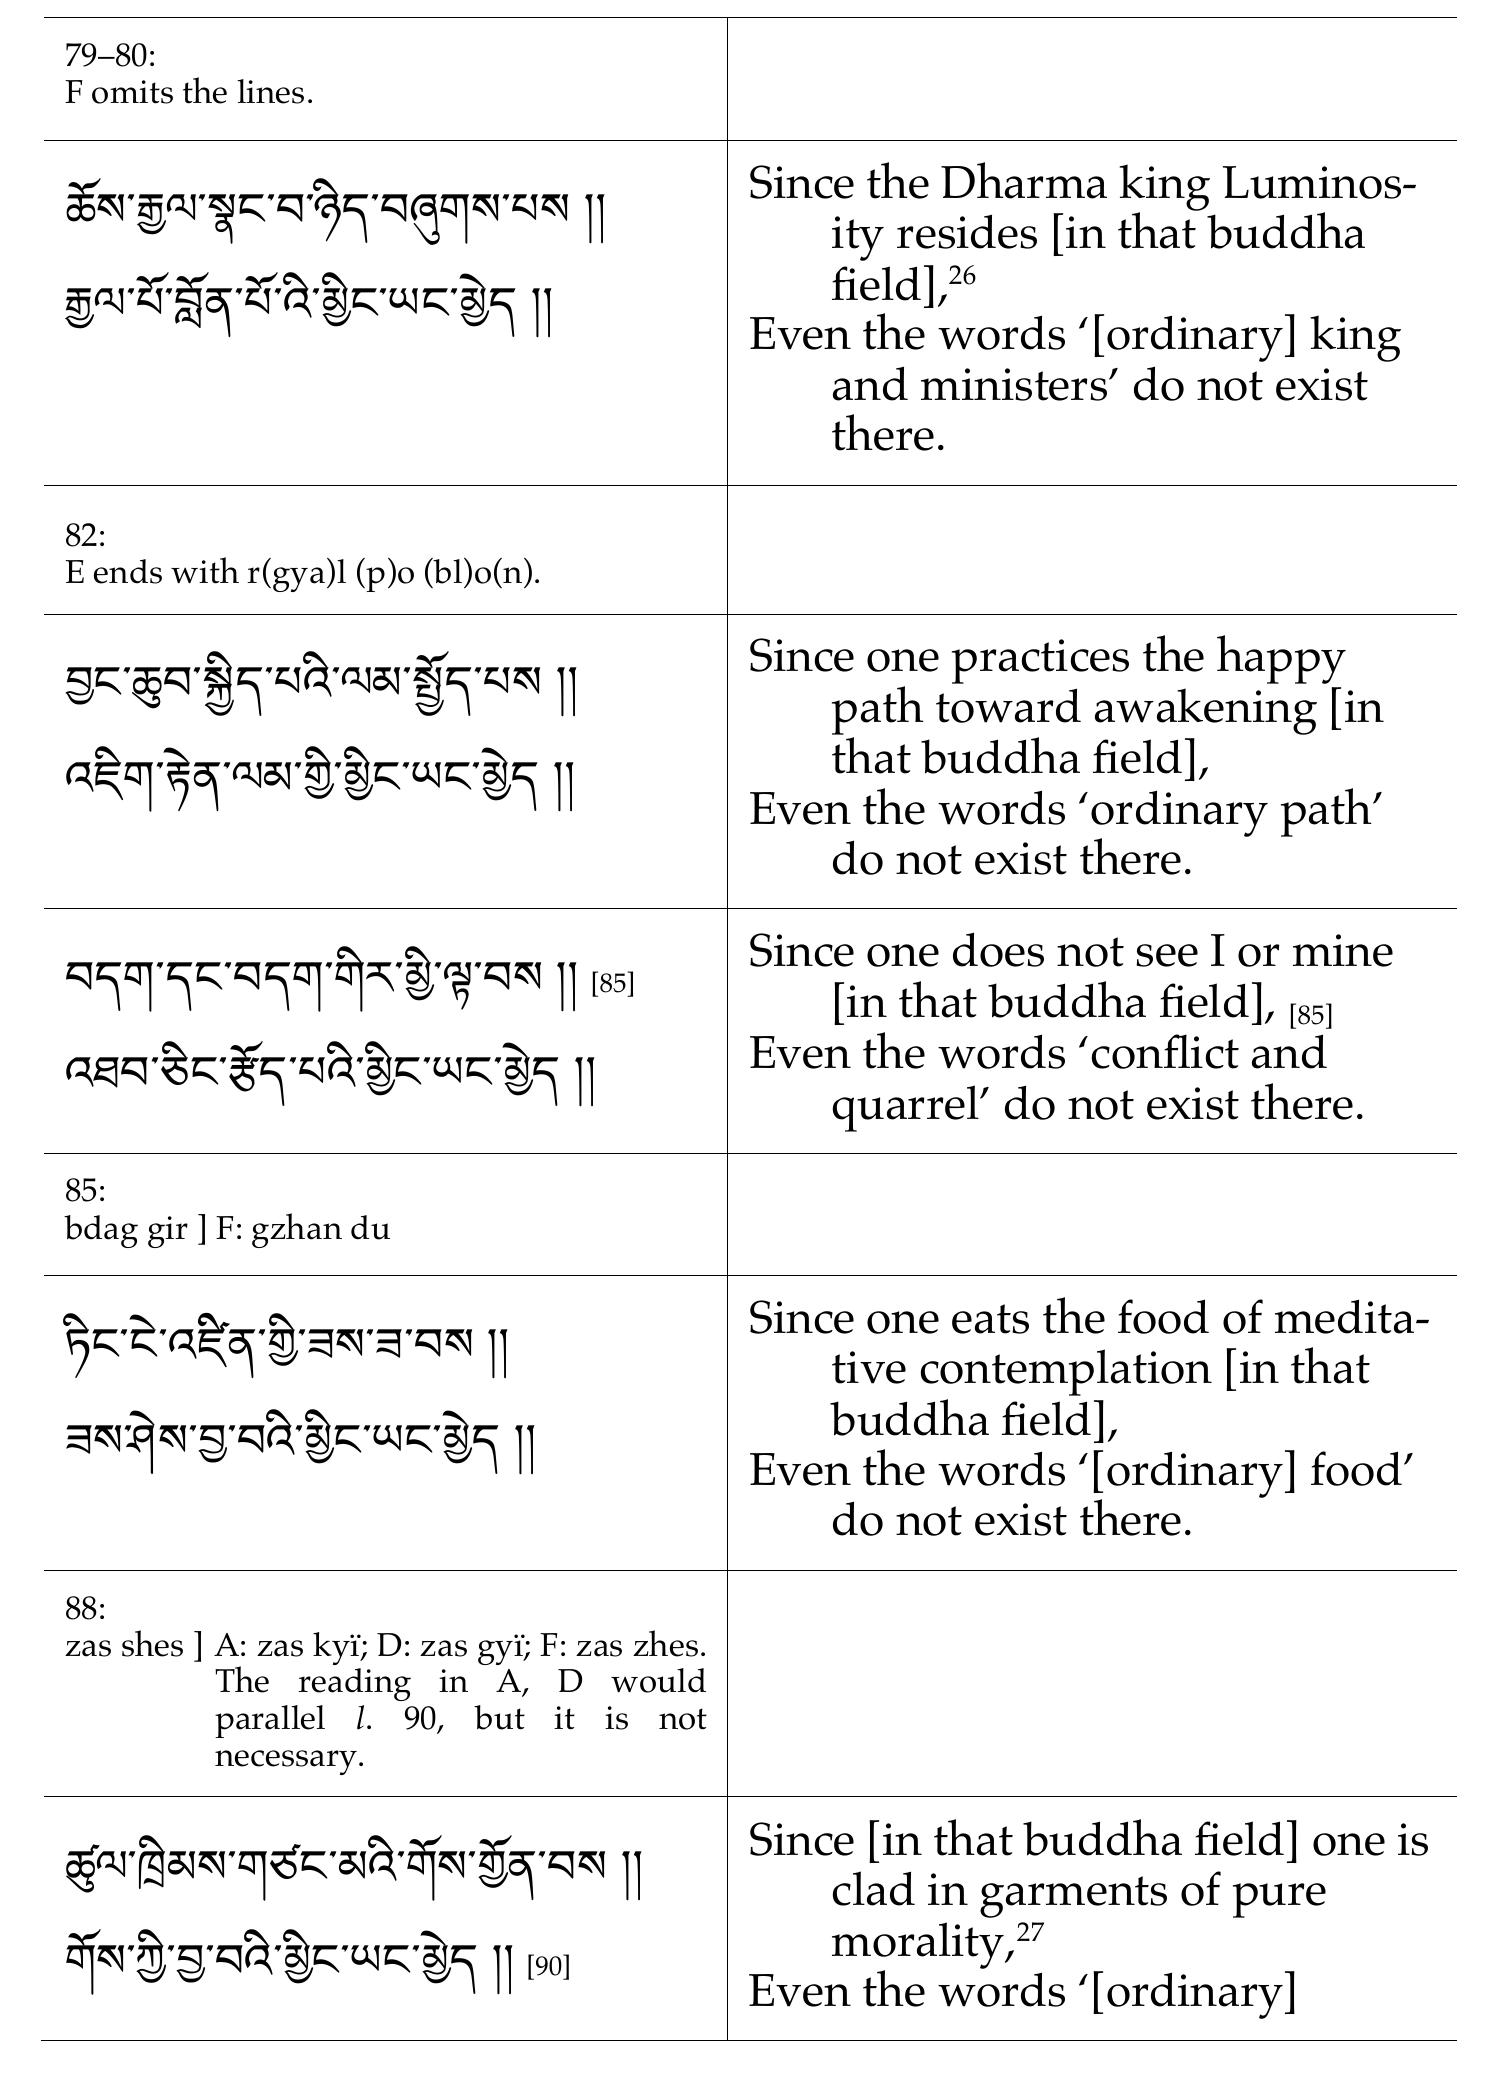 79–80:
F omits the lines.
ཆོས་རྒྱལ་སྣང་བ་ཉིད་བཞུགས་པས །།
རྒྱལ་པོ་བློན་པོ་འི་མྱིང་ཡང་མྱེད །།
Since the Dharma king Luminos-
ity resides [in that buddha
field],26
Even the words ‘[ordinary] king
and ministers’ do not exist
there.
82:
E ends with r(gya)l (p)o (bl)o(n).
བྱང་ཆུབ་སྐྱིད་པའི་ལམ་སྤྱོད་པས །།
འཇིག་རྟེན་ལམ་གྱི་མྱིང་ཡང་མྱེད །།
Since one practices the happy
path toward awakening [in
that buddha field],
Even the words ‘ordinary path’
do not exist there.
བདག་དང་བདག་གིར་མྱི་ལྟ་བས །། [85]
འཐབ་ཅིང་རྩོད་པའི་མྱིང་ཡང་མྱེད །།
Since one does not see I or mine
[in that buddha field], [85]
Even the words ‘conflict and
quarrel’ do not exist there.
85:
bdag gir ] F: gzhan du
ཏིང་ངེ་འཛིན་གྱི་ཟས་ཟ་བས །།
ཟས་ཤེས་བྱ་བའི་མྱིང་ཡང་མྱེད །།
Since one eats the food of medita-
tive contemplation [in that
buddha field],
Even the words ‘[ordinary] food’
do not exist there.
88:
zas shes ] A: zas kyï; D: zas gyï; F: zas zhes.
The reading in A, D would
parallel l. 90, but it is not
necessary.
ཚུལ་ཁྲིམས་གཙང་མའི་གོས་གྱོན་བས །།
གོས་ཀྱི་བྱ་བའི་མྱིང་ཡང་མྱེད །། [90]
Since [in that buddha field] one is
clad in garments of pure
morality,27
Even the words ‘[ordinary]